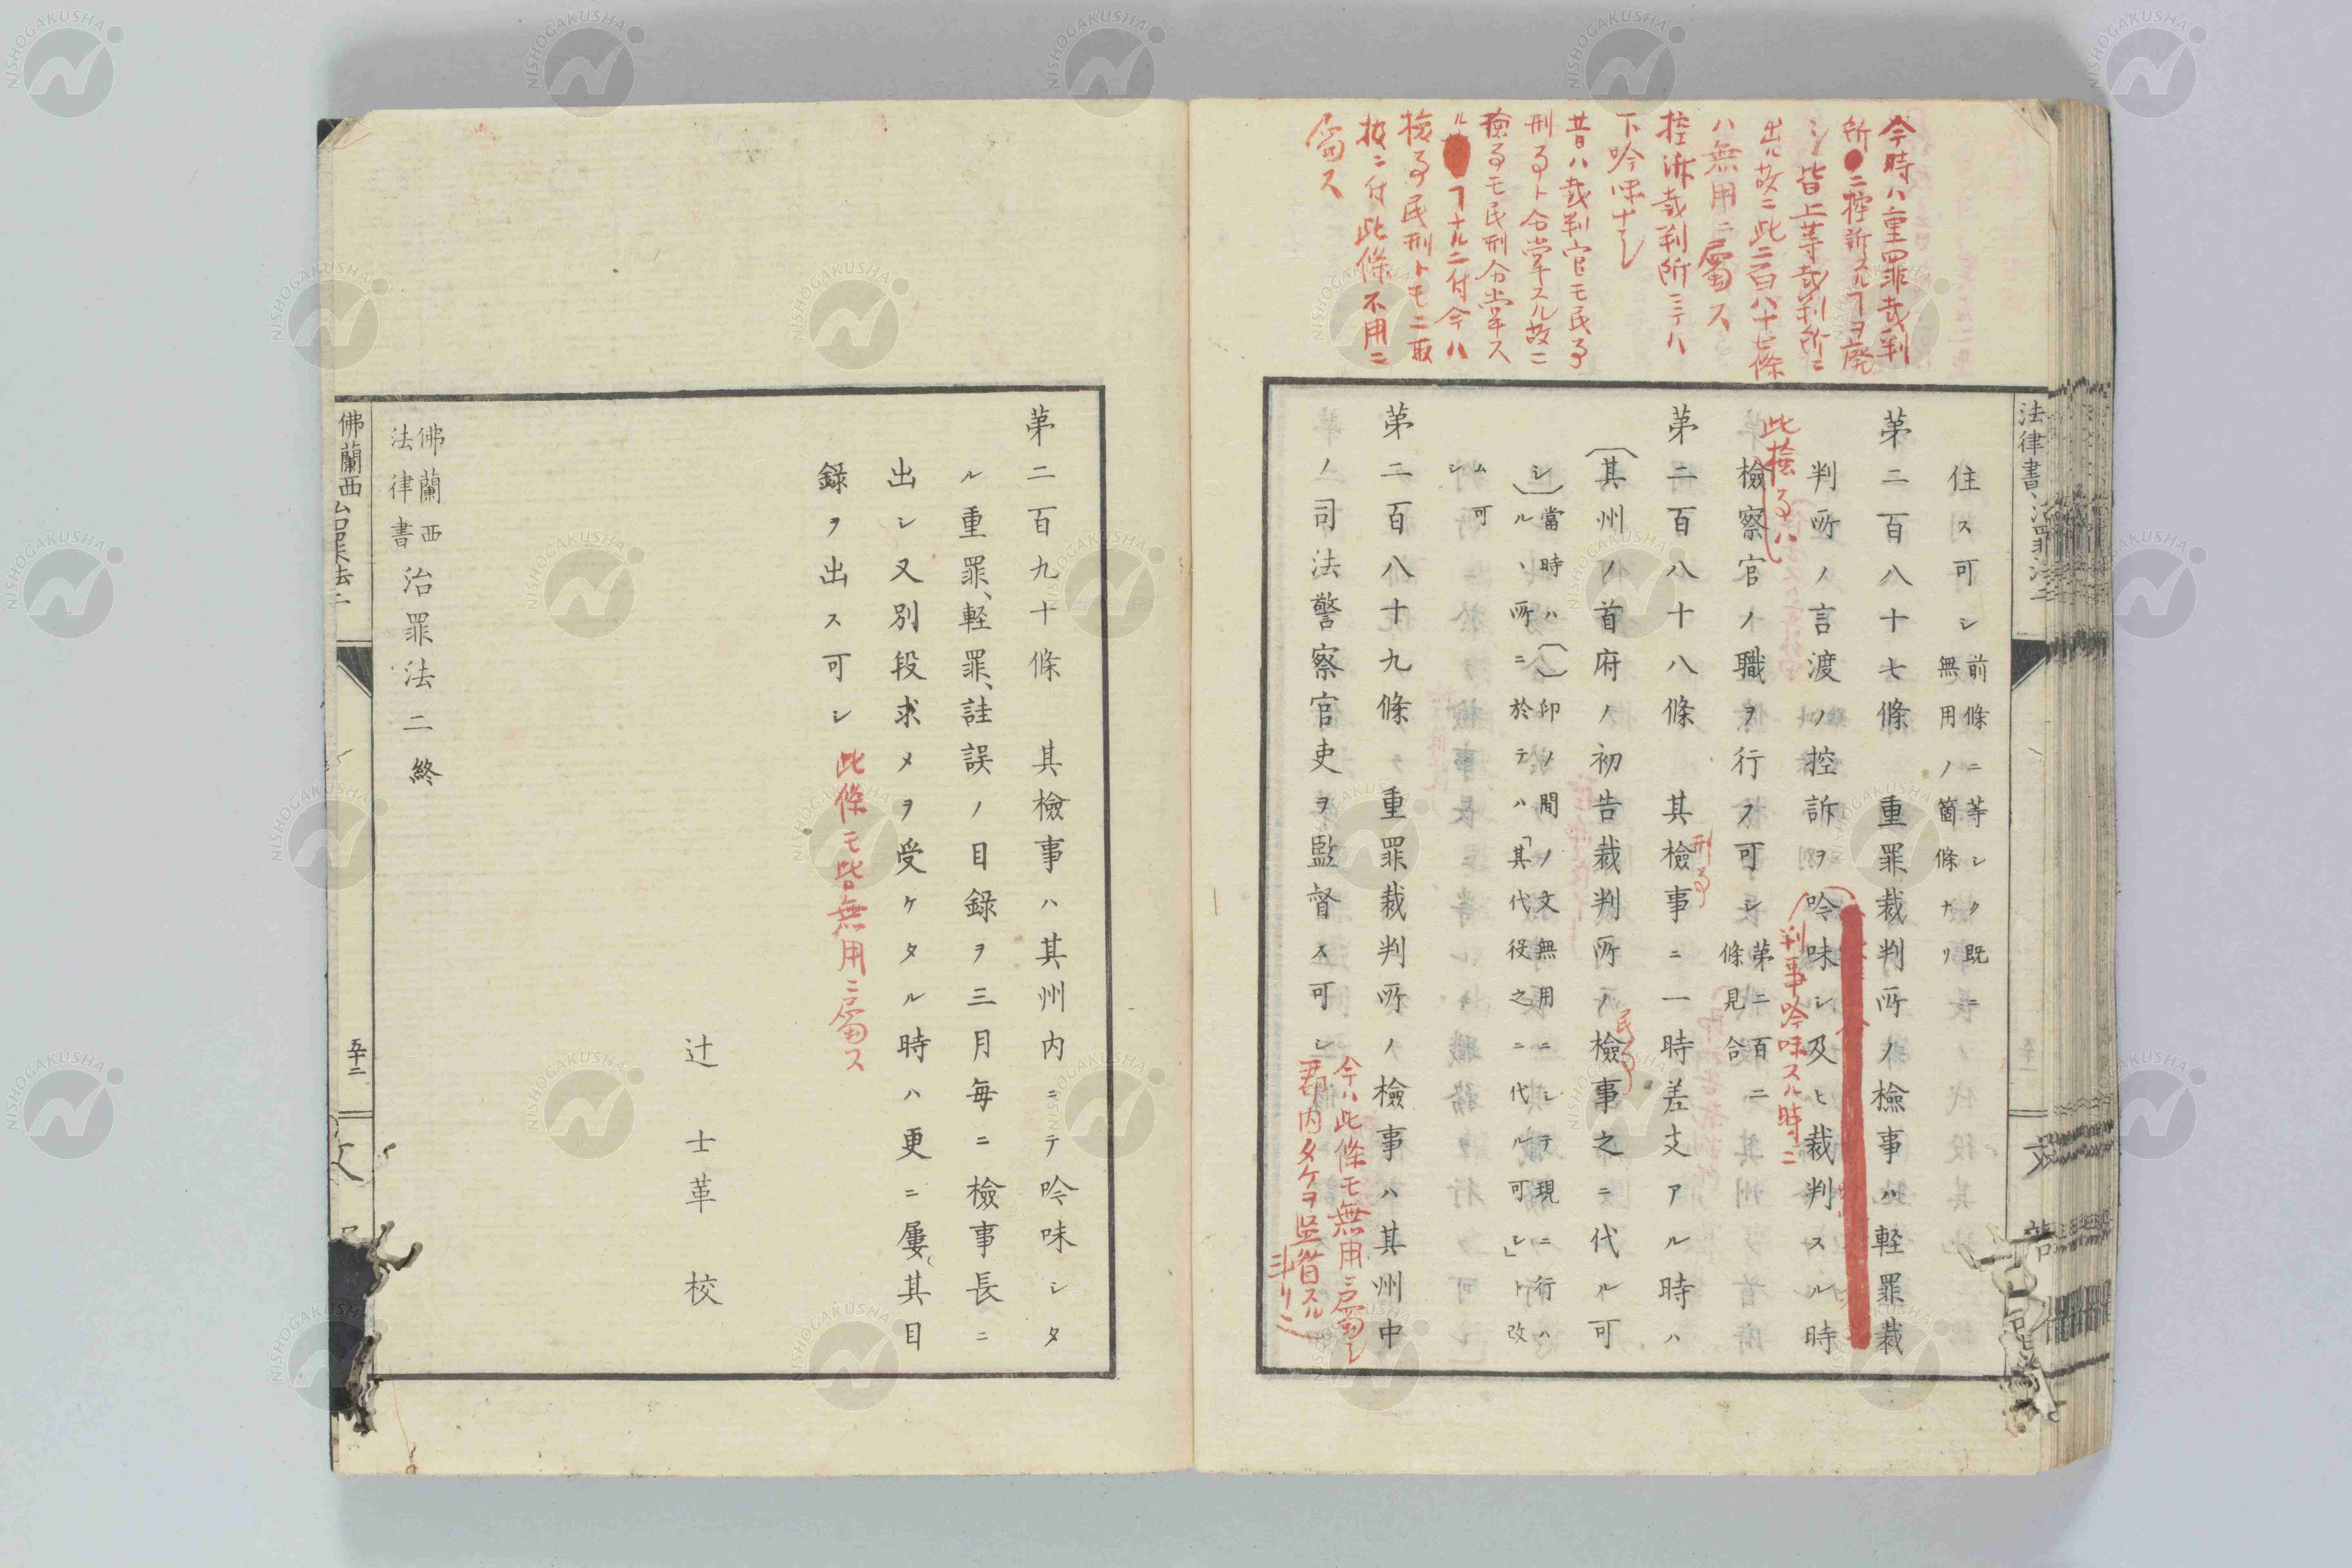 今時ハ重罪裁判
所ニ控訴スルヿヲ廃
シ皆上等裁判所ニ
出ル故ニ此二百八十七條
ハ無用ニ屬ス
控訴裁判所ニテハ
下吟味ナシ
昔ハ裁判官モ民事
刑事ト合掌スル故ニ
檢事モ民刑合掌ス
ルヿナルニ付今ハ
檢事民刑トモニ取
扱ニ付此條不用ニ
屬ス
法律書 治罪法二
住ス可シ
前條ニ等シク既ニ
無用ノ箇條ナリ
第二百八十七條 重罪裁判所ノ檢事ハ軽罪裁
判所ノ言渡ノ控訴ヲ吟味シ及ヒ裁判スル時
判事吟味スル時ニ
此檢事ハ
檢察官ノ職ヲ行フ可シ
第二百二
條見合
第二百八十八條 其檢事ニ一時差支アル時ハ
刑事
其州ノ首府ノ初告裁判所ノ檢事之ニ代ル可
民事
シ
當時ハ〔〕印ノ間ノ文無用ニシテ現ニ行ハ
ルヽ所ニ於テハ「其代役之ニ代ル可シ」ト改
ム可
シ
第二百八十九條 重罪裁判所ノ檢事ハ其州中
ノ司法警察官吏ヲ監督ス可シ
今ハ此條モ無用ニ屬シ
郡内タケヲ監督スル
斗リニ
第二百九十條 其檢事ハ其州内ニテ吟味シタ
ル重罪、軽罪、註誤ノ目録ヲ三月毎ニ檢事長ニ
出シ又別段求メヲ受ケタル時ハ更ニ屢〻其目
録ヲ出ス可シ 此條モ皆無用ニ屬ス
辻 士革 校
佛蘭西
法律書 治罪法二終
佛蘭西治罪法二
五十二